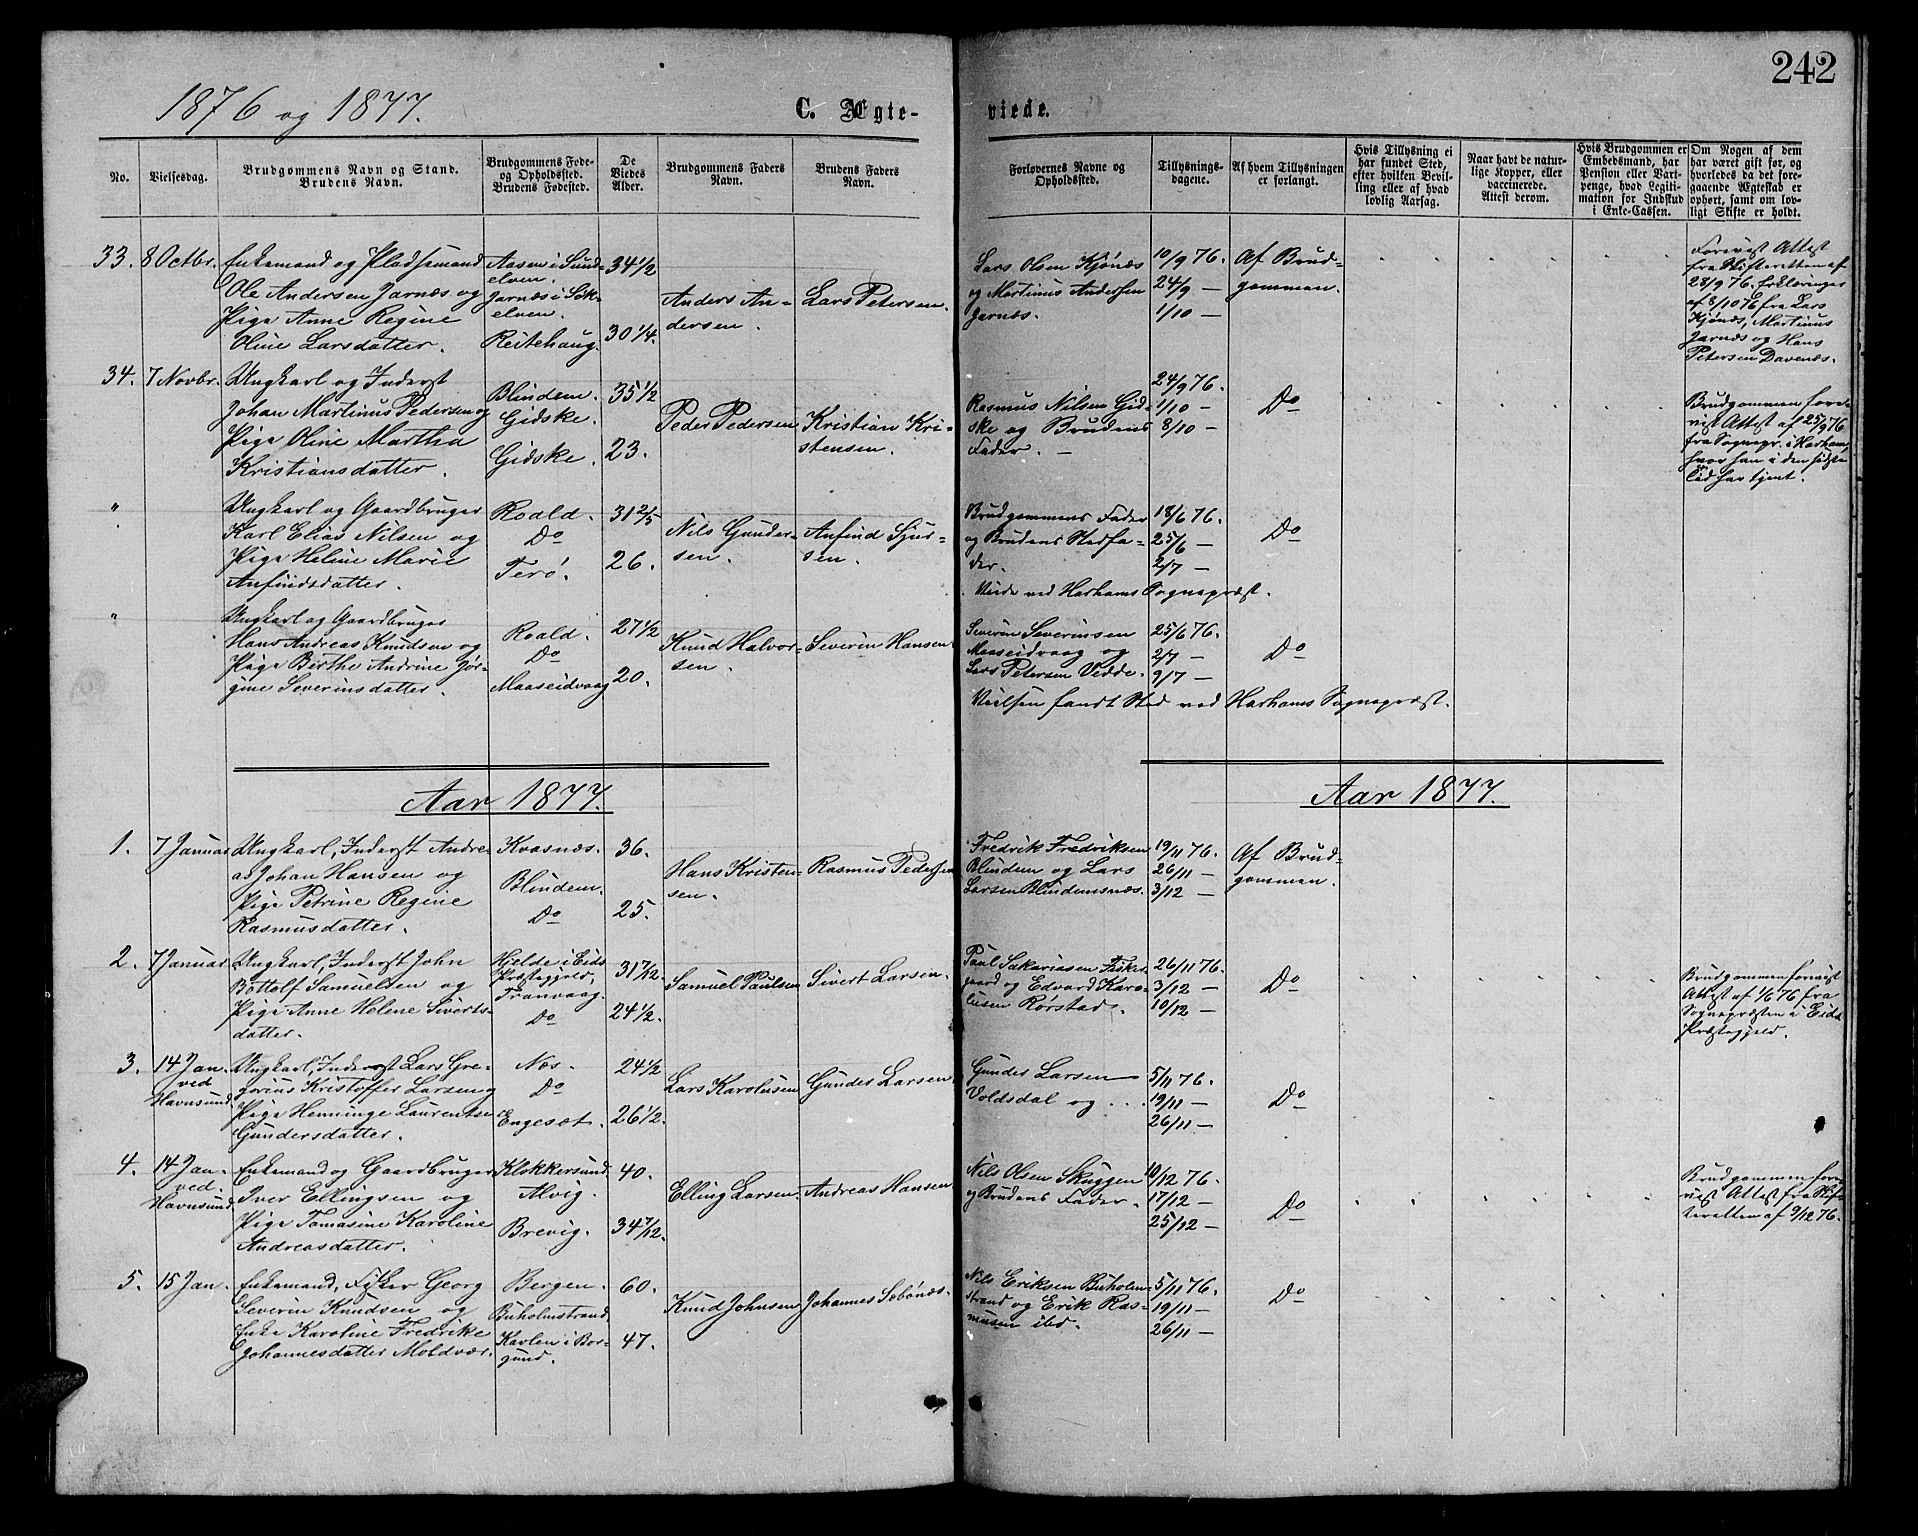 242
1876 og 1877.
C. Ægte-
viede.
No.
Vielsesdag.
Brudgommens Navn og Stand.
Brudens Navn.
Brudgommens Føde-
og Opholdssted.
Brudens Fødested.
De
Viedes
Alder.
Brudgommens Faders
Navn.
Brudens Faders
Navn.
Forlovernes Navne og
Opholdssted.
Tillysnings-
dagene.
Af hvem Tillysningen
er forlangt.
Hvis Tillysning ei
har fundet Sted,
efter hvilken Bevil-
ling eller af hvad
lovlig Aarsag.
Naar havt de natur-
lige Kopper, eller
vaccinerede.
Attest derom.
Hvis Brudgommen er
Embedsmand, har
Pension eller Vart-
penge, hvad Legiti-
mation for Indskud
i Enke-Cassen.
Om Nogen af dem
har været gift før, og
hvorledes da det fore-
gaaende Ægteskab er
ophørt, samt om lov-
ligt Skifte er holdt.
33. 8 Octbr.
Enkemand og Pladsemand
Ole Andersen Jarnæs og
Pige Anne Regine
Oline Larsdatter.
Aasen i Sund-
elven.
Jarnæs i Søk-
elven.
Reitehaug.
34 1/2
30 1/4.
Anders An-
dersen.
Lars Petersen.
Lars Olsen Kjønæs
og Martinus Andersen
Jarnæs.
10/9 76.
24/9 —
1/10 —
Af Brud-
gommen.
Forevist Attest
fra Skifteretten af
28/9 76. Erklæringer
af 8/10 76 fra Lars
Kjønæs, Martinus
Jarnæs og Hans
Petersen Davenæs.
34. 7 Novbr.
Ungkarl og Inderst
Johan Martinus Pedersen og
Pige Oline Martha
Kristiansdatter.
Blindem.
Gidske.
Gidske.
35 1/2
23.
Peder Pedersen
Kristian Kri-
stensen.
Rasmus Nilsen Gid-
ske og Brudens
Fader. —
24/9 76.
1/10 —
8/10 —
Do
Brudgommen fore-
vist Attest af 25/9 76
fra Sognepr. i Harham,
hvor han i den sidste
Tid har tjent.
"
Ungkarl og Gaardbruger
Karl Elias Nilsen og
Pige Heline Marie
Anfindsdatter.
Roald.
Do
Terø.
31 2/5
26.
Nils Gunder-
sen.
Anfind Sjur-
sen.
Brudgommens Fader
og Brudens Stedfa-
der.
18/6 76.
25/6 —
2/7 —
Do
Viede ved Harhams Sognepræst.
"
Ungkarl og Gaardbruger
Hans Andreas Knudsen og
Pige Berthe Andrine Jør-
gine Severinsdatter.
Roald.
Do
Maaseidvaag
27 1/2
20.
Knud Halvor-
sen.
Severin Hansen
Severin Severinsen
Maaseidvaag og
Lars Petersen Vedde.
25/6 76.
2/7 —
9/7 —
Do
Vielsen fandt Sted ved Harhams Sognepræst.
Aar 1877.
Aar 1877.
1. 7 Januar
Ungkarl, Inderst Andre-
as Johan Hansen og
Pige Petrine Regine
Rasmusdatter.
Kvasnæs.
Blindem.
Do
36.
25.
Hans Kristen-
sen.
Rasmus Pedersen
Fredrik Fredriksen
Blindem og Lars
Larsen Blindemsnæs.
19/11 76.
26/11 —
3/12 —
Af Brud-
gommen.
2. 7 Januar
Ungkarl, Inderst John
Bottolf Samuelsen og
Pige Anne Helene Siverts-
datter.
Hjelde i Eids
Præstegjeld,
Tranvaag.
Do
31 7/12.
24 1/2.
Samuel Paulsen
Sivert Larsen.
Paul Sakariasen Fisker-
gaard og Edvard Karo-
lusen Rørstad.
26/11 76.
3/12 —
10/12 —
Do
Brudgommen forevist
Attest af 1/6 76 fra
Sognepræsten i Eids
Præstegjeld.
3. 14 Jan.
ved
Havnsund.
Ungkarl, Inderst Lars Gre-
gorius Kristoffer Larsen og
Pige Henninge Laurentse
Gundersdatter.
Næs.
Do
Engesæt.
24 1/2
26 1/2.
Lars Karolusen
Gunder Larsen
Gunder Larsen
Voldsdal og . . .
5/11 76.
19/11 —
26/11 —
Do
4. 14 Jan.
ved
Havnsund.
Enkemand og Gaardbruger
Iver Ellingsen og
Pige Tomasine Karoline
Andreasdatter.
Klokkersund.
Alvig.
Brevig.
40.
34 7/12.
Elling Larsen.
Andreas Hansen
Nils Olsen Skuggen
og Brudens Fader.
10/12 76.
17/12 —
25/12 —
Do
Brudgommen fore-
vist Attest fra Skif-
teretten af 9/12 76.
5. 15 Jan.
Enkemand, Fisker Georg
Severin Knudsen og
Enke Karoline Fredrike
Johannesdatter Moldvær.
Bergen.
Buholmstrand
Kavlen i Bor-
gund.
60.
47.
Knud Johnsen
Johannes Sæbønæs.
Nils Eriksen Buholm-
strand og Erik Ras-
musen ibd.
5/11 76.
19/11 —
26/11 —
Do